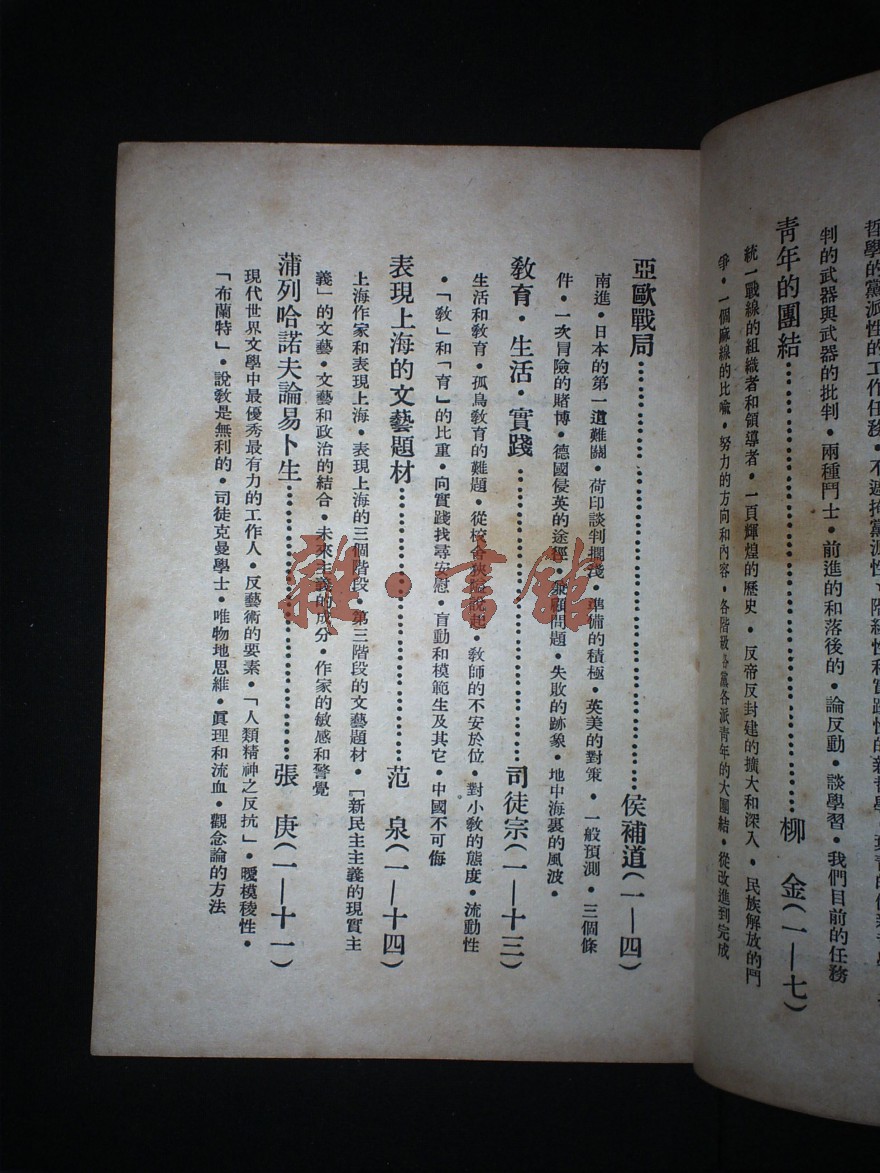 哲學的黨派性的工作任務・不避掩黨派性・階級性和實踐性的新哲學・
判的武器與武器的批判・兩種鬥士・前進的和落後的・論反動・談學習・我們目前的任務
靑年的團結 柳　金(一—七)
統一戰線的組織者和領導者・一頁輝煌的歷史・反帝反封建的擴大和深入・民族解放的鬥
爭・一個麻線的比喩・努力的方向和內容・各階級各黨各派靑年的大團結・從改進到完成
亞歐戰局 侯補道(一—四)
南進・日本的第一道難關・荷印談判擱淺・準備的積極・英美的對策・一般預測・三個條
件・一次冒險的賭博・德國侵英的途徑・兼顧問題・失敗的跡象・地中海裏的風波・
敎育・生活・實踐 司徒宗(一—十三)
生活和敎育・孤島敎育的難題・從校舍狹隘說起・敎師的不安於位・對小敎的態度・流動性
・「敎」和「育」的比重・向實踐找尋安慰・盲動和模範生及其它・中國不可侮
表現上海的文藝題材 范　泉(一—十四)
上海作家和表現上海・表現上海的三個階段・第三階段的文藝題材・「新民主主義的現實主
義」的文藝・文藝和政治的結合・未來主義的成分・作家的敏感和警覺
蒲列哈諾夫論易卜生 張　庚(一—十一)
現代世界文學中最優秀最有力的工作人・反藝術的要素・「人類精神之反抗」・曖模稜性・
「布蘭特」・說敎是無利的・司徒克曼學士・唯物地思維・眞理和流血・觀念論的方法
雜・書館